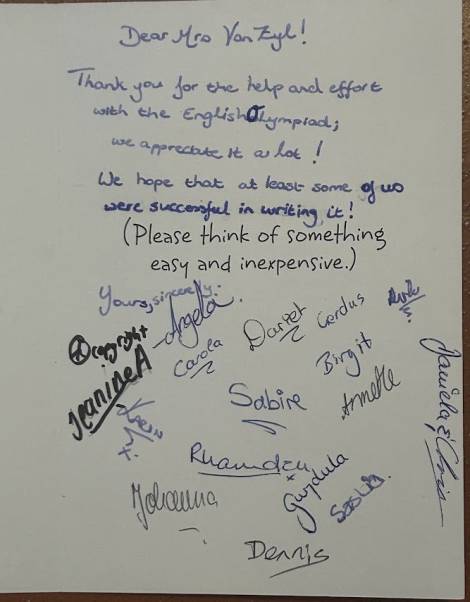 Dear Mrs Van Zyl!
Thank you for the help and effort
with the English Olympiad;
we appreciate it a lot!
We hope that at least some of us
were successful in writing it!
(Please think of something
easy and inexpensive.)
Yours, sincerely:
Angela
copyright
Jeanine A
Carola
Daniel
Gerdus
Birgit
Annette
Daniela & Chris
Sabine
Gundula
Saskia
Johanna
Dennis